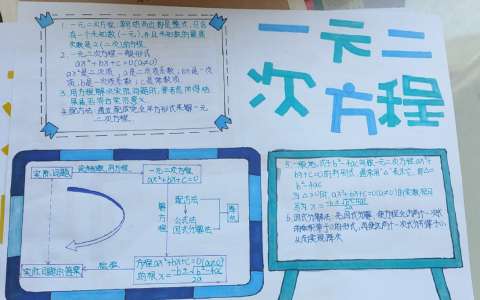 一元二次方程
1. 一元二次方程:等号两边都是整式,只含
有一个未知数(一元),并且未知数的最高
次数是2(二次)的方程.
2. 一元二次方程一般形式
ax²+bx+c=0(a≠0)
ax²是二次项,a是二次项系数;bx是一次
项,b是一次项系数;c是常数项
3. 用方程解决实际问题时,要考虑所得结
果是否符合实际意义.
4. 配方法:通过配成完全平方形式来解一元
二次方程.
实际问题
设未知数,列方程
一元二次方程
ax²+bx+c=0
解方程
配方法
公式法
因式分解法
降次
实际问题的答案
检验
方程ax²+bx+c=0(a≠0)
的根x=-b±√b²-4ac/2a
5. 一般地,式子b²-4ac叫做一元二次方程ax²+
bx+c=0根的判别式,通常用"△"表示它,即△=
b²-4ac
当△≥0时,ax²+bx+c=0(a≠0)的实数根可
写为x=-b±√b²-4ac/2a
6. 因式分解法:先因式分解,使方程化为两个一次式
的乘积等于0的形式,再使这两个一次式分别等于0,
从而实现降次